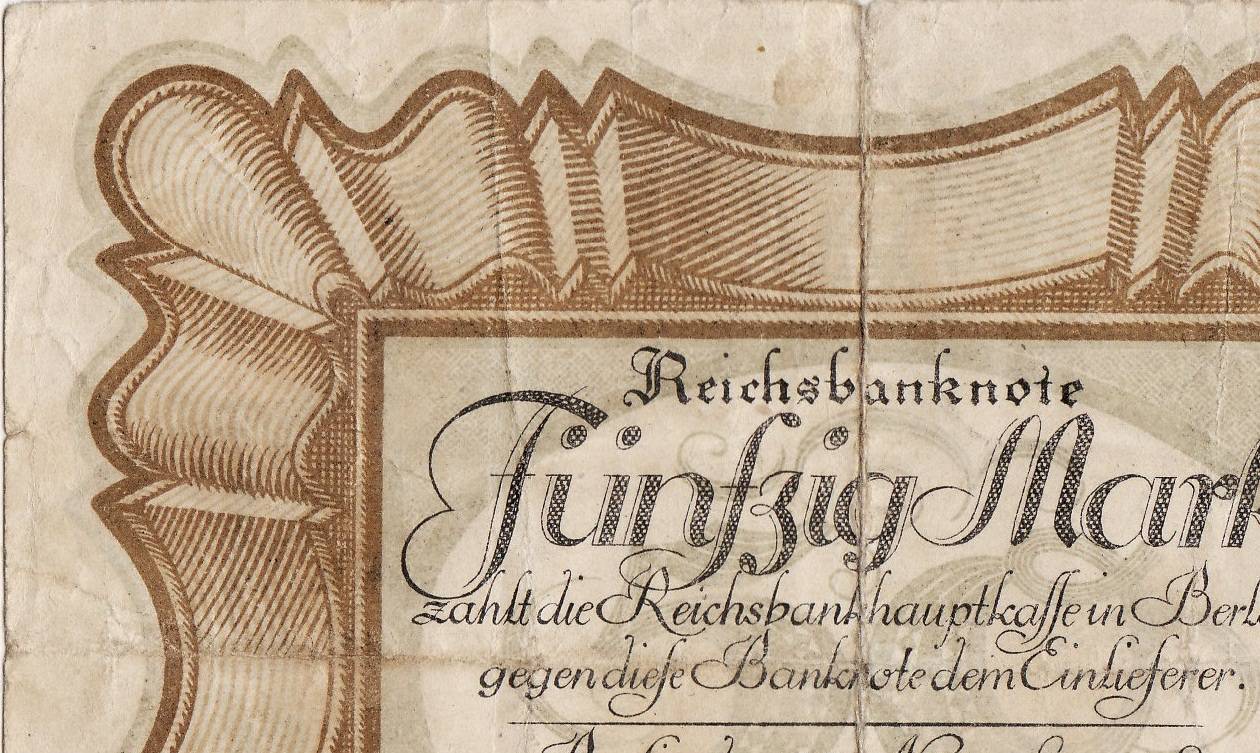 Reichsbanknote
Fünfzig Mark
zahlt die Reichsbankhauptkasse in Berl
gegen diese Banknote dem Einlieferer.